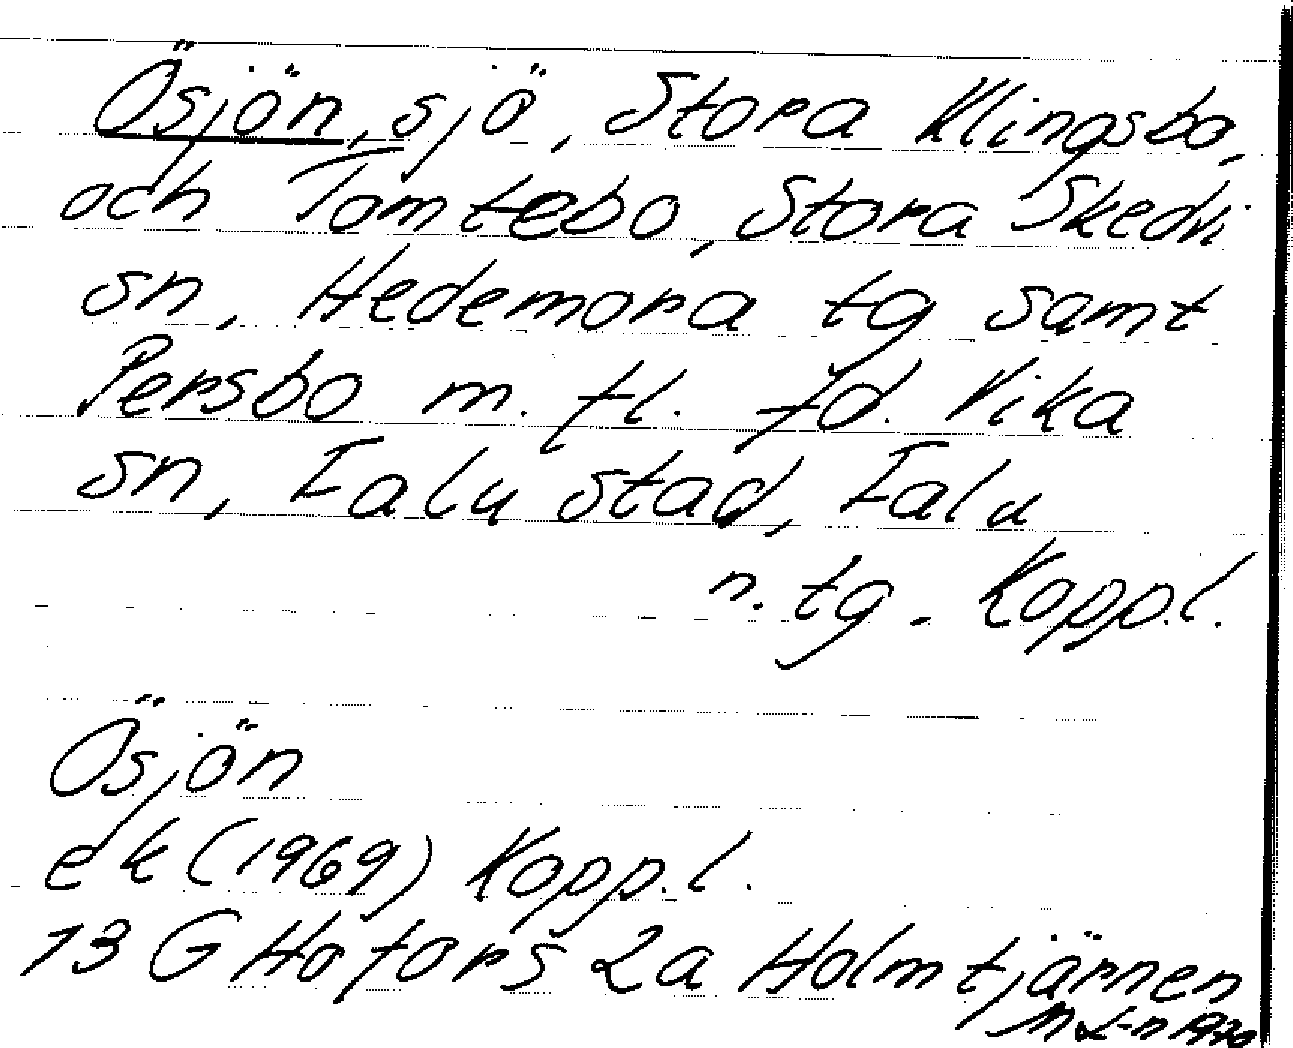 Ösjön, sjö, Stora Klingsbo,
och Tomtebo, Stora Skedvi
sn, Hedemora tg samt
Persbo m. fl. fd. Vika
sn, Falu stad, Falu
n. tg. Kopp.l.
Ösjön
ek (1969) Kopp.l.
13 G Hofors 2a Holmtjärnen